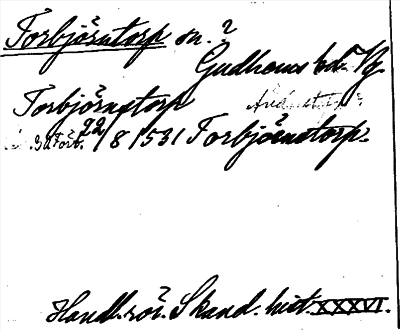 Torbjörntorp sn.?
Gudhems hd. Vg
Torbjörnstorp
22/8 1531 Torbjörnstorp.
Handl. rör. Skand. hist. XXXVI.